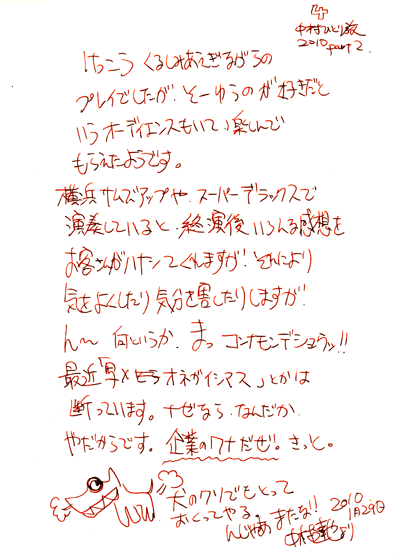 4
中村ひとり旅
2010 part 2.
けっこう くるしみあえぎながらの
プレイでしたが、そーゆうのが好きだと
いうオーディエンスもいて、楽しんで
もらえたようです。
横浜サムズアップや、スーパーデラックスで
演奏していると、終演後いろんな感想を
お客さんがハナシてくれますが、それにより
気をよくしたり気分を害したりしますが、
ん〜 何というか、まっ コンナモンデショウッ!!
最近「写メ オネガイシマス」とかは
断っています。ナゼなら、なんだか
やだからです。企業のワナだぜ!きっと。
犬のクソでもとって
おくってやる。
んじゃあ またな!! 2010
1月29日
中村 より